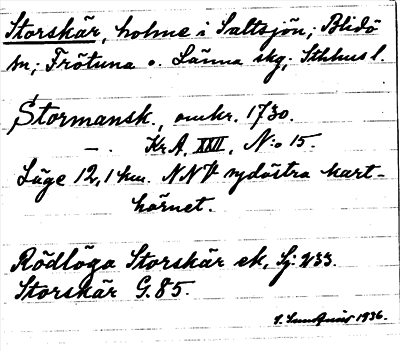 Storskär, holme i Saltsjön; Blidö
sn; Frötuna o. Länna skg; Sthlms l.
Stormansk., omkr. 1730.
—. Kr.A. XXII, N:o 15.
Läge 12,1 km. NNV sydöstra kart-
hörnet.
Rödlöga Storskär ek, Sj: 233.
Storskär G.85.
1936.